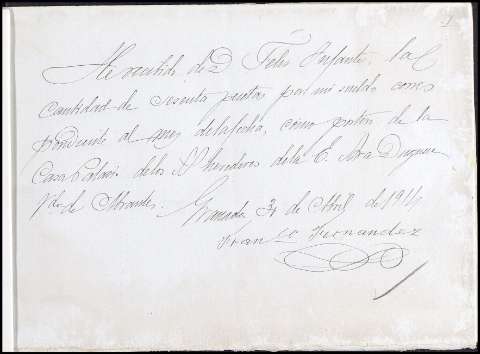 He recibido de D Felix Infante, la
Cantidad de sesenta pesetas por mi sueldo corres
pondiente al mes de la fecha, como portero de la
Casa Palacio de los S. herederos de la E. Sra Duquesa
Vda de Abrantes. Granada 30 de Abril de 1914
Franco Fernandez